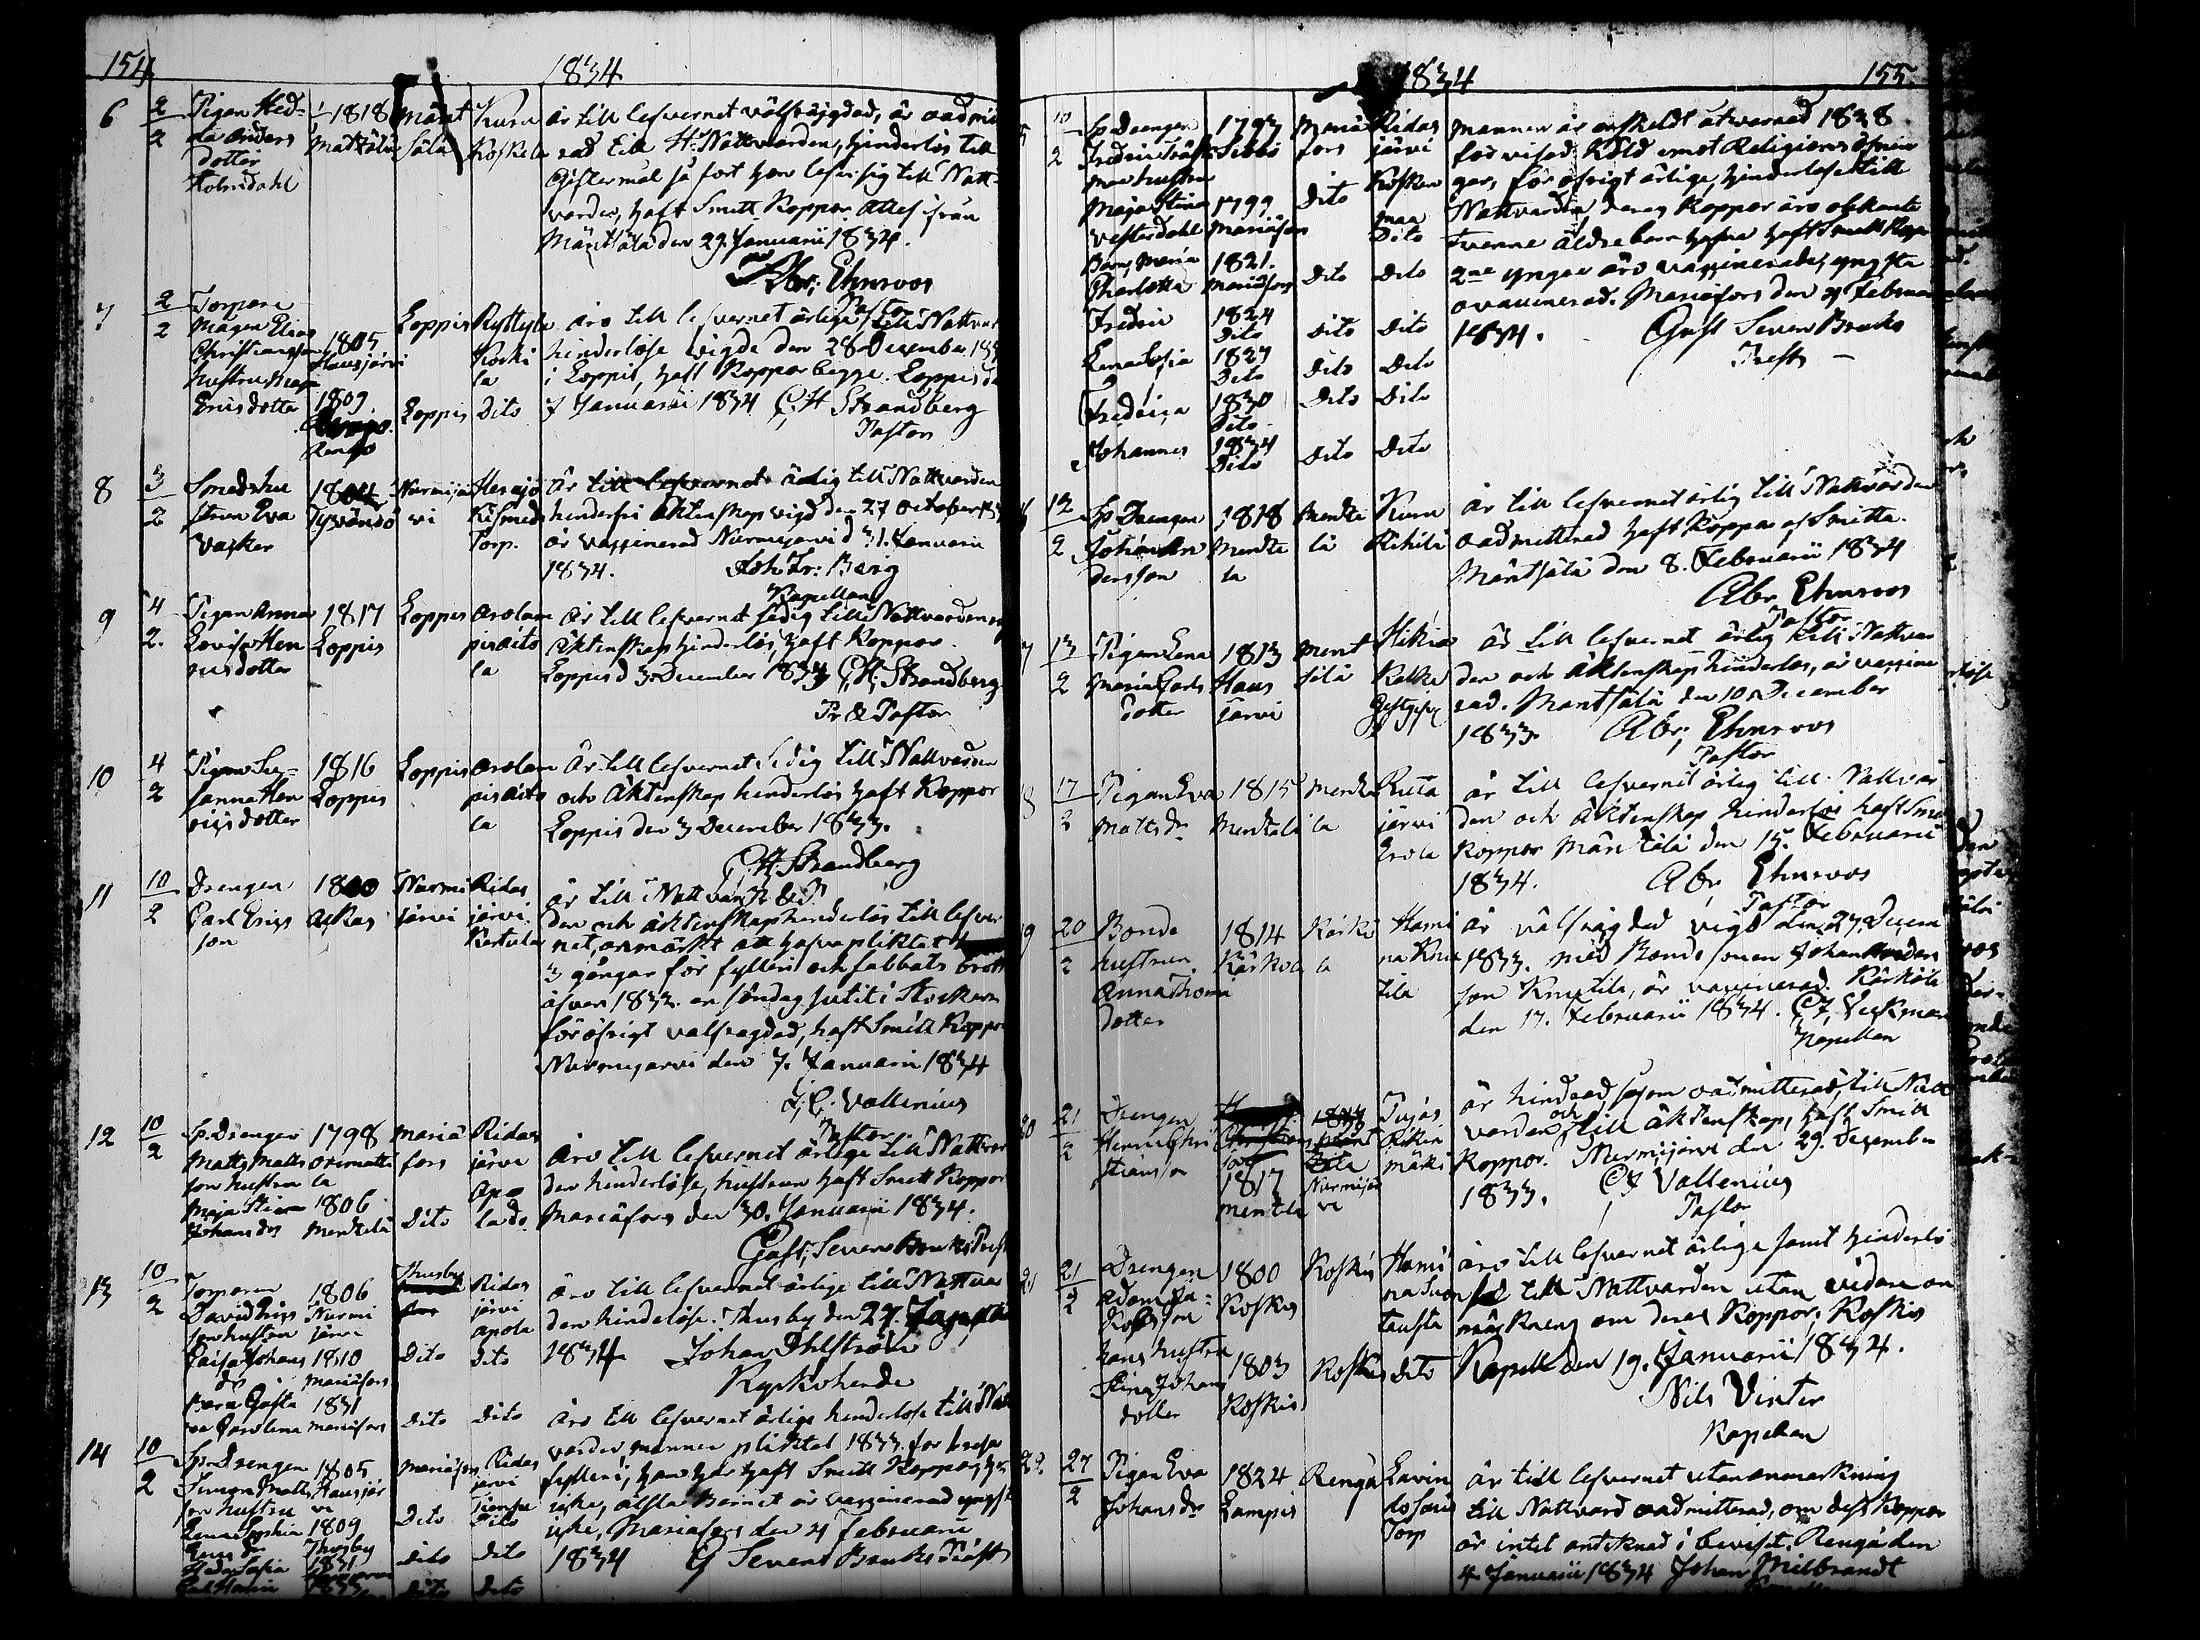 154
1834
6 2/2 Pigan Hed-
da Anders
dotter
Holmdahl
1818
Mäntsälä
Mänt
sälä
Kuru
Koskela
är till lefvernet välfrägdad, är oadmit
rad till H. Nattvarden, hinderlös till
Giftermål så fort hon lefver sig till Natt-
varden, haft Smitt Koppor Attest från
Mäntsälä den 29. Januarii 1834.
Abr: Ehnroos
Pastor
7 2/2 Torpare
Mågen Elias
Christiansson
hustru Maja
Ericsdotter
1805
Hausjärvi
1809
Renge
Loppis
Loppis
Ryttylä
Koski
la
Dito
äro till lefvernet ärlige till Nattvar
hinderlöse vigde den 28 December 183
i Loppis, haft Koppor begge. Loppis d
7 Januarii 1834 C. H. Strandberg
Pastor
8 3/2 Smedshu
strun Eva
Vasker
1804
Nurmijär
vi
Herajo
ki Smeds
Torp.
är till lefvernet ärlig till Nattvarden
hinderfri Äktenskap vigd den 27 October
är vaxinerad Nurmijärvi d 31. Januarii
1834. Joh. Fr: Berg
Kapellan
9 4/2 Pigan Anna
Lovisa Hen
ricsdotter
1817
Loppis
Loppis
Arolam
pis Aito
la
är till lefvernet sedig till Nattvarden och
Äktenskap hinderlös, haft Koppor.
Loppis d 3 December 1833 C. H. Strandberg
Pr & Pastor
10 4/2 Pigan Su-
sanna Hen
ricsdotter
1816
Loppis
Loppis
Arolam
pis Aito
la
är till lefvernet sedig till Nattvarden
och Äktenskap hinderlös haft Koppor
Loppis den 3 December 1833.
C. H. Strandberg
Pr & P.
11 10/2 Drengen
Carl Erics
son
1800
Askas
Nurmi
järvi
Ridas
järvi
Kertula
är till Nattvar
den och äktenskap hinderlös till lefver
net, anmärkt att hafva pliktat
3 gånger för fylleri och sabbats brott
äfven 1833 en söndag sutit i Stocken
för öfrigt välfrägdad, haft Smitt Koppor
Nurmijärvi den 7. Januarii 1834
C. Vallenius
Pastor
12 10/2 Sp. Drengen
Matts Matts
son hustru
Maja Stina
Johansdr
1798
Orimatti
la
1806
Mentsälä
Mariä
fors
Dito
Ridas
järvi
Apo
la do
äro till lefvernet ärlige till Nattvar
den hinderlöse, hustrun haft Smitt Koppor
Mariæfors den 30. Januarii 1834.
Gust. Sever Bruks Prest
13 10/2 Torparen
David Erics
son hustru
Caisa Johans
dr
Barn Gusta
va Carolina
1806
Nurmi
järvi
1810
Mariæfors
1831
Mariæfors
Thusby
Dito
Dito
Ridas
järvi
Apola
Dito
Dito
äro till lefvernet ärlige till Nattvar
den hinderlöse. Thusby den 27.
1834 Johan Ohlström
Kyrkoherde
14 10/2 Sp. Drengen
Simon Matts
son hustru
Lena Sophia
Hedda Sofia
1805
Hausjär
vi
1809
Thusby
1831
Mariæfors
Dito
Dito
Dito
Ridas
järvi
Dito
Dito
Dito
äro till lefvernet ärlige hinderlöse till Natt
varden mannen pliktat 1833 för
fylleri, han har haft Smitt Koppor,
icke, älsta Barnet är vaxinerad yngst
icke, Mariæfors den 4 Februarii
1834 G Severi Bruks Präst
1834
155
10/2 Sp. Drengen
Fredric
med hustru
Maja Stina
Vesterdahl
Barn, Maria
Charlotta
Fredric
Lena Sofia
Fredrica
Johannes
1797
Sibbo
1799
Mariæfors
1821.
Mariæfors
1824
Dito
1827
Dito
1830
Dito
1834
Dito
Mariæ
fors
Dito
Dito
Dito
Dito
Dito
Dito
Ridas
järvi
Kosken
maa
Dito
Dito
Dito
Dito
Dito
Dito
mannen är enskeldt åtvarnad 1838
för visad köld emot Religions öfnin
gar, för öfrigt ärlige, hinderlöse till
Nattvarden, deras Koppor äro obekante
tvenne äldre barn hafva haft Smitt Kopp
2ne yngre äro vaxinerade, yngste
ovaccinerad. Mariæfors den 9 Februarii
1834. Gust Severi Bruks
Prest
12/2 Sp. Drengen
Johan An
dersson
1818
Mentsä
lä
Mentsä
lä
Kuru
Rihila
är till lefvernet ärlig till Nattvarden
oadmitterad haft Koppor af Smitta.
Mäntsälä den 8. Februarii 1834
Abr Ehnroos
Pastor
13/2 Pigan Lena
Maria Carls
dotter
1813
Haus
järvi
Ment
sälä
Hikiä
Kalke
Gestgifv
är till lefvernet ärlig till Nattvar
den och äktenskap hinderlös, är vaxine
rad. Mäntsälä den 10 December
1833. Abr. Ehnroos
Pastor
17/2 Pigan Eva
Matts Dr
1815
Mentsälä
Mentsä
lä
Ruta
järvi
Erola
är till lefvernet ärlig till Nattvar
den och äktenskap hinderlös haft Smi
Koppor Mäntsälä den 15. Februarii
1834. Abr Ehnroos
Pastor
20/2 Bonde
hustrun
Anna Thoma
Dotter
1814
Kärkölä
Kärkö
la
Hami
na Knu
tila
är välfrägdad vigd den 27 Decem
1833. med Bonde sonen Johan Anders
son Knutila, är vaccinerad. Kärkölä
den 17. Februarii 1834. C. J. Vickman
Kapellan
20 21/2 Drengen
Henric Chri
stiansson
1817
Mentsälä
Nurmijär
vi
Pujas
Rikin
mäki
är hindrad såsom oadmitterad, till Natt
varden och till äktenskap, haft Smitt
Koppor. Nurmijärvi den 29. December
1833. C J Vallenius
Pastor
21 21/2 Drengen
Adam Ja-
kobsson
hans hustru
Stina Johans
dotter
1800
Koskis
1803
Koskis
Koskis
Koskis
Hami
na Suon
tausta
Dito
äro till lefvernet ärlige samt hinderlö
se till Nattvarden utan vidare an
märkning om deras Koppor. Koskis
Kapell den 19. Januarii 1834.
Nils Vinter
Kapellan
22. 27/2 Pigan Eva
Johans Dr
1824
Lampis
Rengå
Lavin
Torp
är till lefvernet utan anmärkning
till Nattvard oadmitterad, om dess Koppor
är intet antecknad i beviset. Rengå den
4. Januarii 1834 Johan Milbrandt